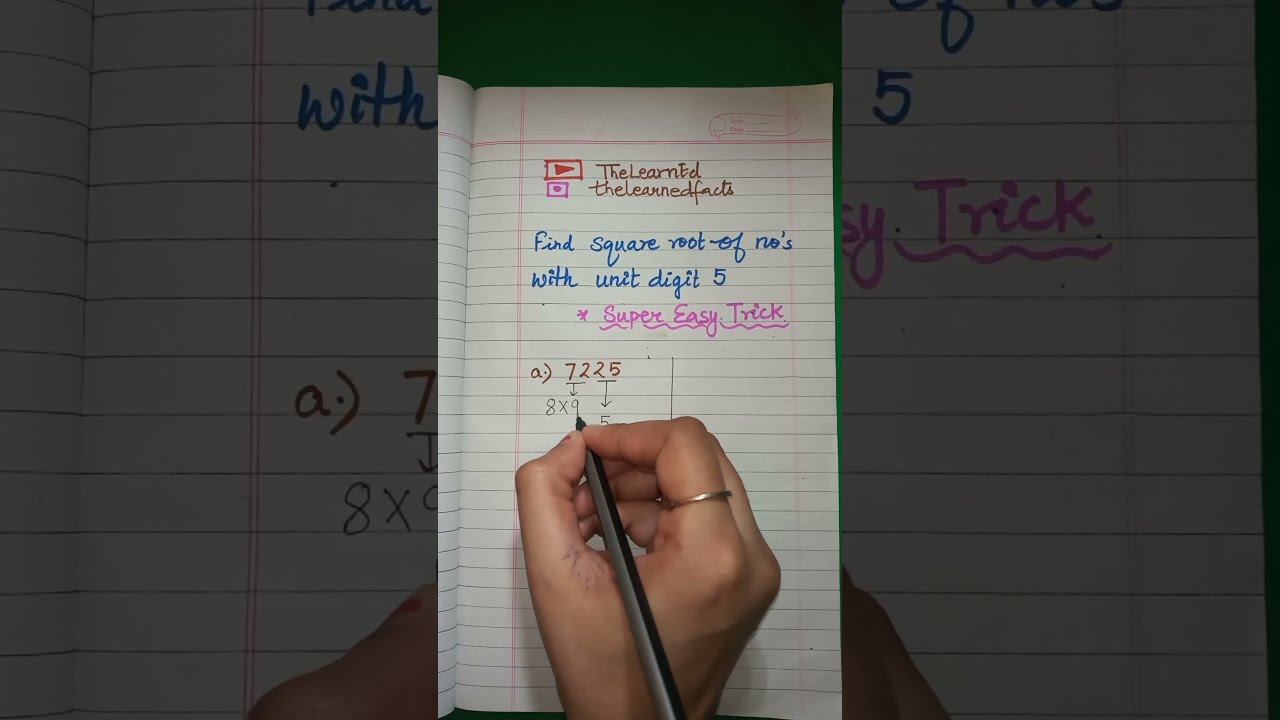 Date
Page
TheLearnEd
thelearnedfacts
Find square root of no's
with unit digit 5
* Super Easy Trick
a.) 7225
8×9
5